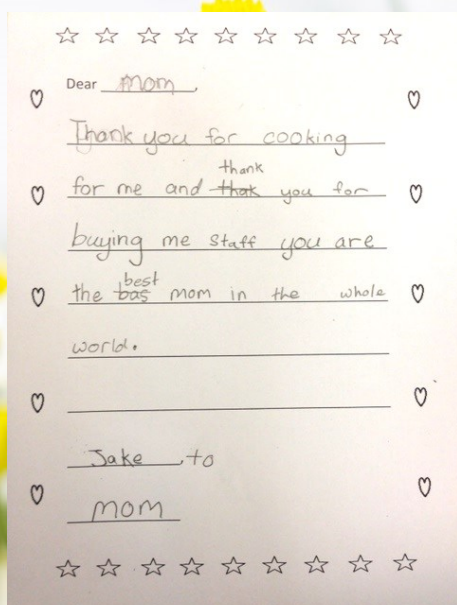 Dear mom,
Thank you for cooking
thank
for me and thak you for
buying me staff you are
best
the bas mom in the whole
world.
Jake, to
mom